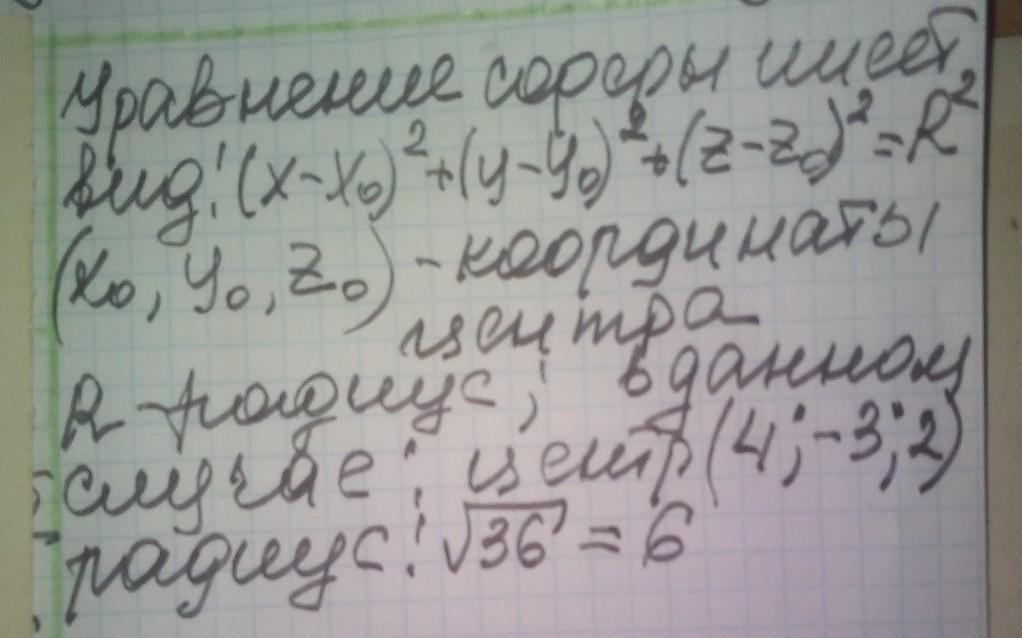 Уравнение сферы имеет
вид: (x-x₀)²+(y-y₀)²+(z-z₀)²=R²
(x₀, y₀, z₀) - координаты
центра
R - радиус; в данном
случае: центр (4; -3; 2)
радиус: √36 = 6